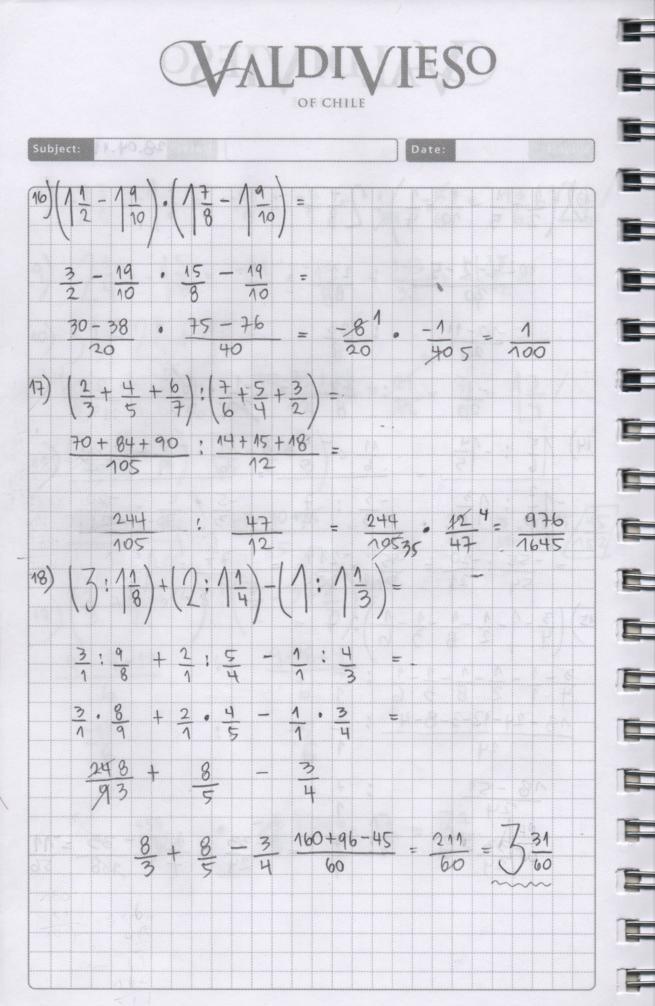 VALDIVIESO
OF CHILE
Subject: Date:
16) (1 1/2 - 1 9/10) · (1 7/8 - 1 9/10) =
3/2 - 19/10 · 15/8 - 19/10 =
30-38/20 · 75-76/40 = -8 1/20 · -1/40 5 = 1/100
17) (2/3 + 4/5 + 6/7) : (7/6 + 5/4 + 3/2) =
70+84+90/105 : 14+15+18/12 =
244/105 : 47/12 = 244/105 35 · 12 4/47 = 976/1645
18) (3 : 1 1/8) + (2 : 1 1/4) - (1 : 1 1/3) =
3/1 : 9/8 + 2/1 : 5/4 - 1/1 : 4/3 =
3/1 · 8/9 + 2/1 · 4/5 - 1/1 · 3/4 =
24 8/9 3 + 8/5 - 3/4
8/3 + 8/5 - 3/4 160+96-45/60 = 211/60 = 3 31/60